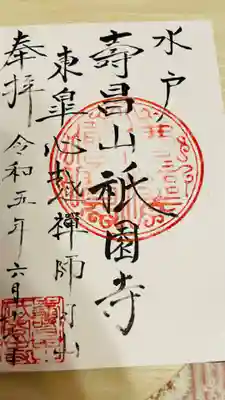 水戸
壽昌山祇園寺
東皐心越禪師開山
奉拝 令和五年六月